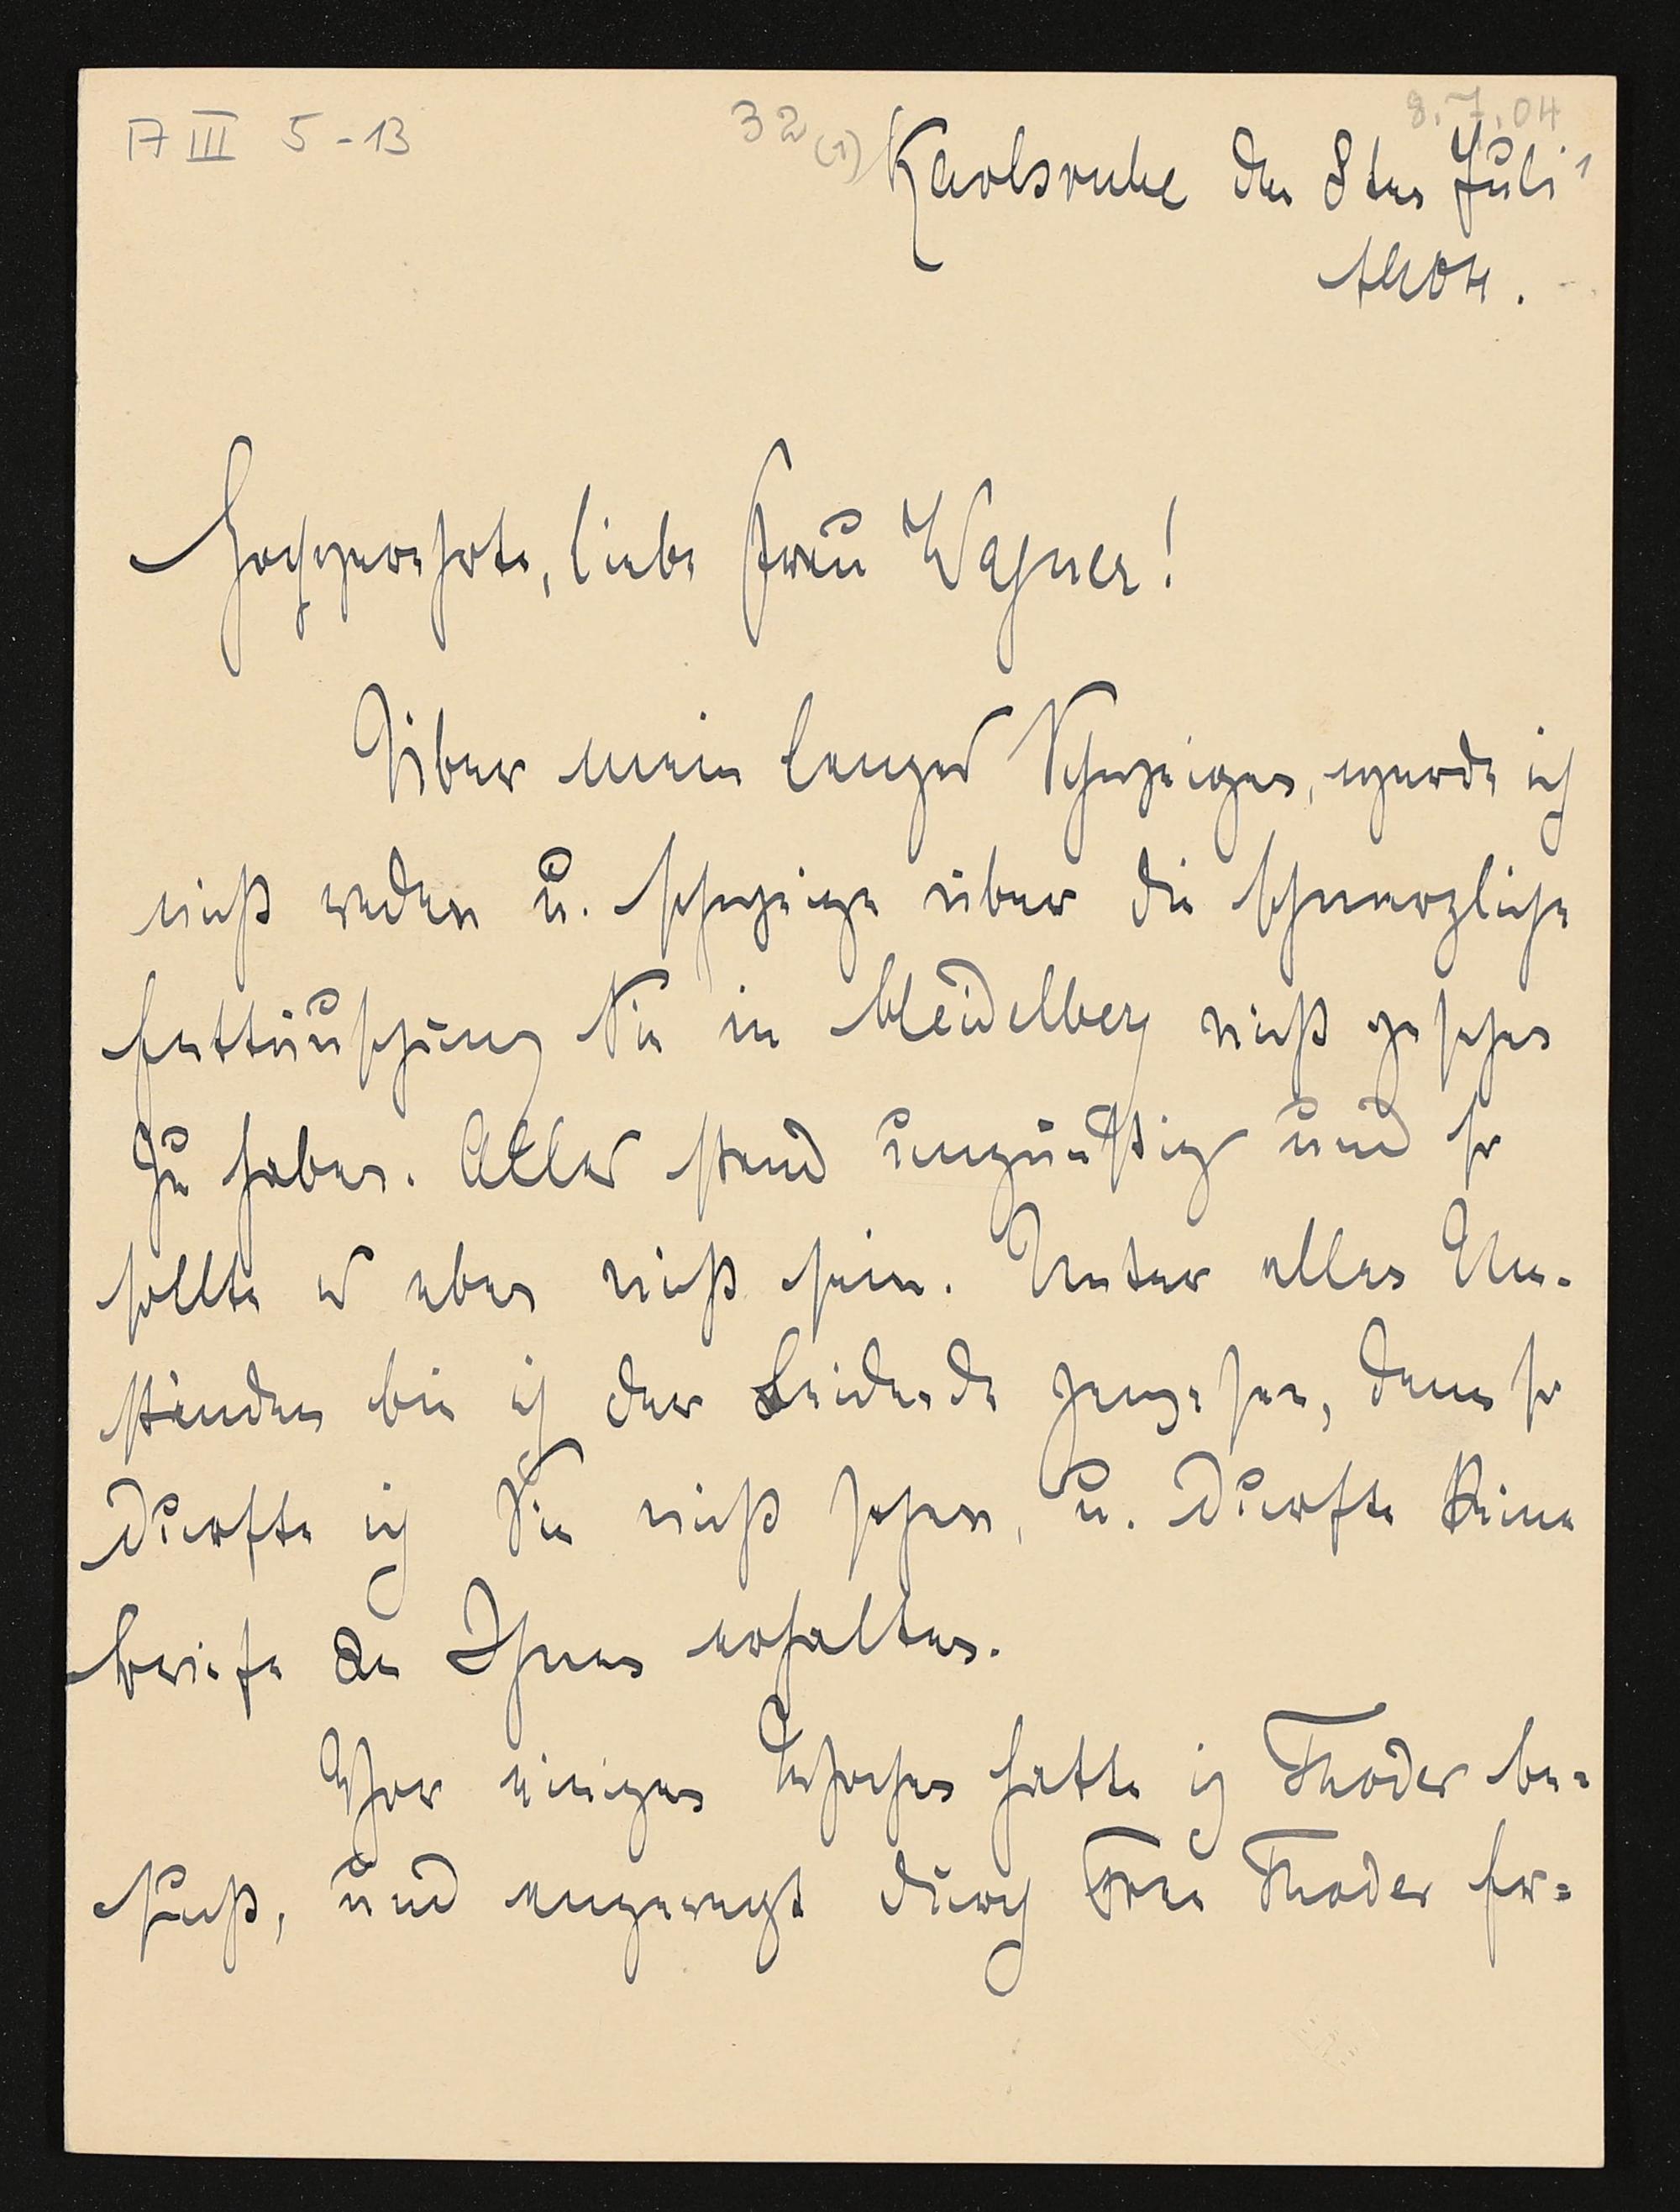 17 III 5-13
32 (1)
8.7.04
Karlsruhe den 8ten Juli
1904.
Hochverehrte, liebe Frau Wagner!
Über mein langes Schweigen, werde ich
nicht reden u. schweige über die schmerzliche
Enttäuschung Sie in Heidelberg nicht gesehen
zu haben. Alles stand ungünstig und so
sollte es eben nicht sein. Unter allen Um-
ständen bin ich der Leidende gewesen, denn so
durfte ich Sie nicht sehen, u. durfte keine
Briefe von Ihnen erhalten.
Vor einigen Wochen hatte ich Thodes be-
sucht, und angeregt durch Frau Thodes Er-